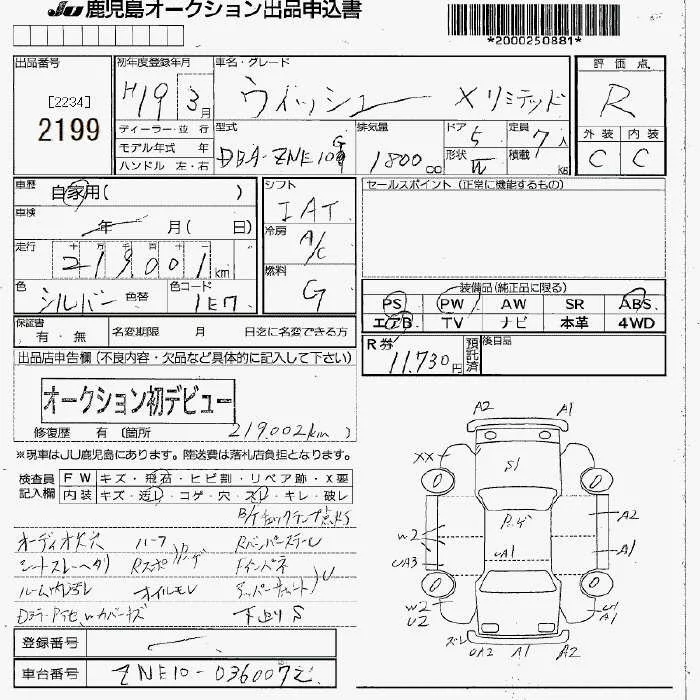 JU 鹿児島オークション出品申込書
*2000250881*
出品番号
[2234]
2199
初年度登録年月
H19 3月
ディーラー・並 行
モデル年式 年
ハンドル 左・右
車名・グレード
ウィッシュ X リミテッド
型式
DBA-ZNE10G
排気量
1800 cc
ドア 5
形状 W
定員 7人
積載 kg
評価点
R
外装 内装
C C
車歴
自家用( )
車検
年 月( 日)
走行
十 万 千 百 十 一
219001km
色
シルバー
色替
色コード
1E7
シフト
IAT
冷房
A/C
燃料
G
セールスポイント (正常に機能するもの)
装備品(純正品に限る)
PS PW AW SR ABS
エアB TV ナビ 本革 4WD
保証書
有・無
名変期限 月 日迄に名変できる方
R券
11,730円
預託済
後日品
出品店申告欄 (不良内容・欠品など具体的に記入して下さい)
オークション初デビュー
修復歴 有 (箇所 219,002km)
※現車はJU鹿児島にあります。陸送費は落札店負担となります。
検査員
記入欄
FW キズ・飛石・ヒビ割・リペア跡・X要
内装 キズ・汚レ・コゲ・穴・スレ・キレ・破レ
B/Kチェックランプ点灯
オーディオ欠穴 ハーフ RバンパーステーU
シートスレ・ヘタリ Rスポ Fインパネ
ルーム内汚レ オイルモレ アッパーサポートU
下廻りS
登録番号
車台番号
ZNE10-0360072
A2 A1
XX
S1
P.ゲ
A2
W2
UA1
A1
UA3
W2
U2
U1
A1
ズレ
UA2 A1 A2